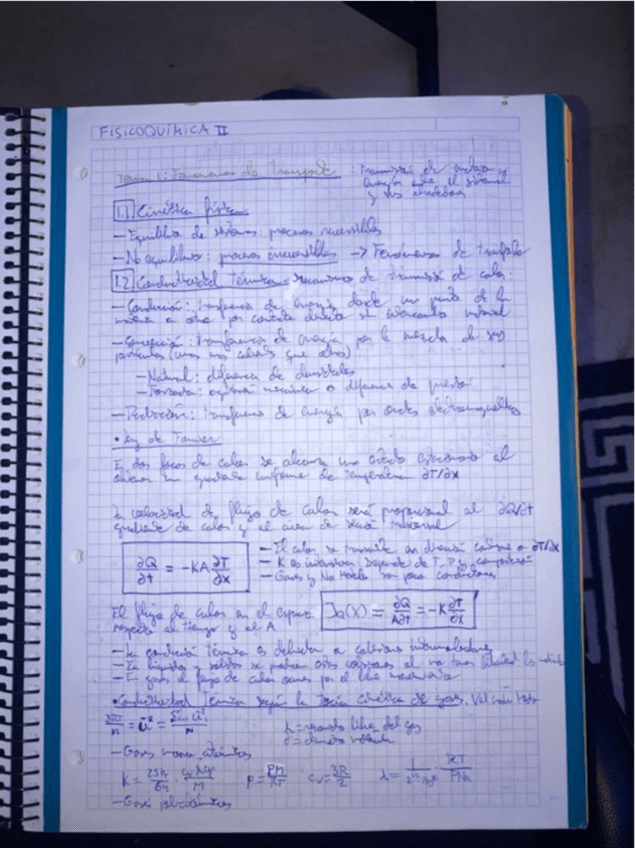 FISICOQUÍMICA II
Tema 1: Fenómenos de Transporte: transmisión de materia y
energía entre el sistema
y sus alrededores
1.1 Cinética física
- Equilibrio de sistemas: procesos reversibles
- No equilibrio: procesos irreversibles -> Fenómenos de transporte
1.2 Conductividad Térmica: mecanismos de transmisión de calor:
- Conducción: transferencia de energía desde un punto de la
materia a otro por contacto directo sin intercambio material
- Convección: transferencia de energía por la mezcla de sus
partículas (unas más calientes que otras)
- Natural: diferencia de densidades
- Forzada: agitación mecánica o diferencia de presión
- Radiación: transferencia de energía por ondas electromagnéticas
• Ley de Fourier
En dos focos de calor se alcanza un estado estacionario al
un gradiente uniforme de temperatura ∂T/∂x
La velocidad de flujo de calor será proporcional al ∂Q/∂t
gradiente de calor y el área de
∂Q/∂t = -KA ∂T/∂x
- El calor se transmite en dirección contraria a ∂T/∂x
- K es intensiva, depende de T, P y composición
- Gases y No Metales son poco conductores
El flujo de calor en el espacio
respecto al tiempo y al A
JQ(X) = ∂Q/A∂t = -K ∂T/∂x
- La conducción térmica es debida a colisiones intermoleculares
- En líquidos y sólidos se producen estas colisiones al no tener libertad
- En gases el flujo de calor ocurre por el libre movimiento
• Conductividad Térmica según la Teoría Cinética de gas.
λ = recorrido libre del gas
σ = diámetro molecular
- Gases monoatómicos
P = PM/RT
Cv = 3R/2
- Gases poliatómicos